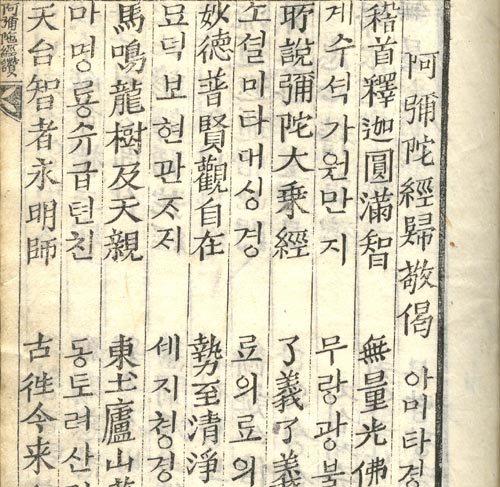 阿彌陀經歸敬偈 아미타경
稽首釋迦圓滿智 無量光佛
계수석가원만지 무량광불
所說彌陀大乘經 了義了義
소셜미타대싱경 료의료의
妙德普賢觀自在 勢至清淨
묘덕보현관ᄌᆞᄌᆡ 셰지쳥졍
馬鳴龍樹及天親 東土廬山
마명룡슈급텬친 동토려산
天台智者永明師 古徃今来
阿彌陀經讚